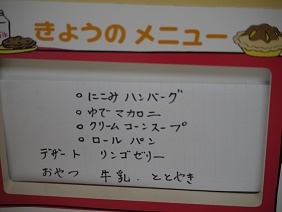 きょうの メニュー
○ にこみ ハンバーグ
○ ゆで マカロニ
○ クリーム コーンスープ
○ ロール パン
デザート リンゴゼリー
おやつ 牛乳. ととやき